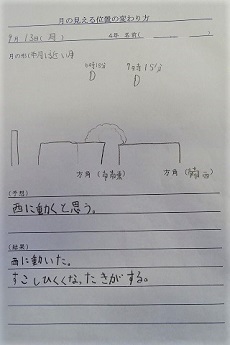 月の見える位置の変わり方
9月13日(月) 4年 名前( )
月の形(半月)に近い月
6時15分 7時15分
D D
方角(南南東) 方角(南西)
(予想)
西に動くと思う。
(結果)
西に動いた。
すこしひくくなったきがする。